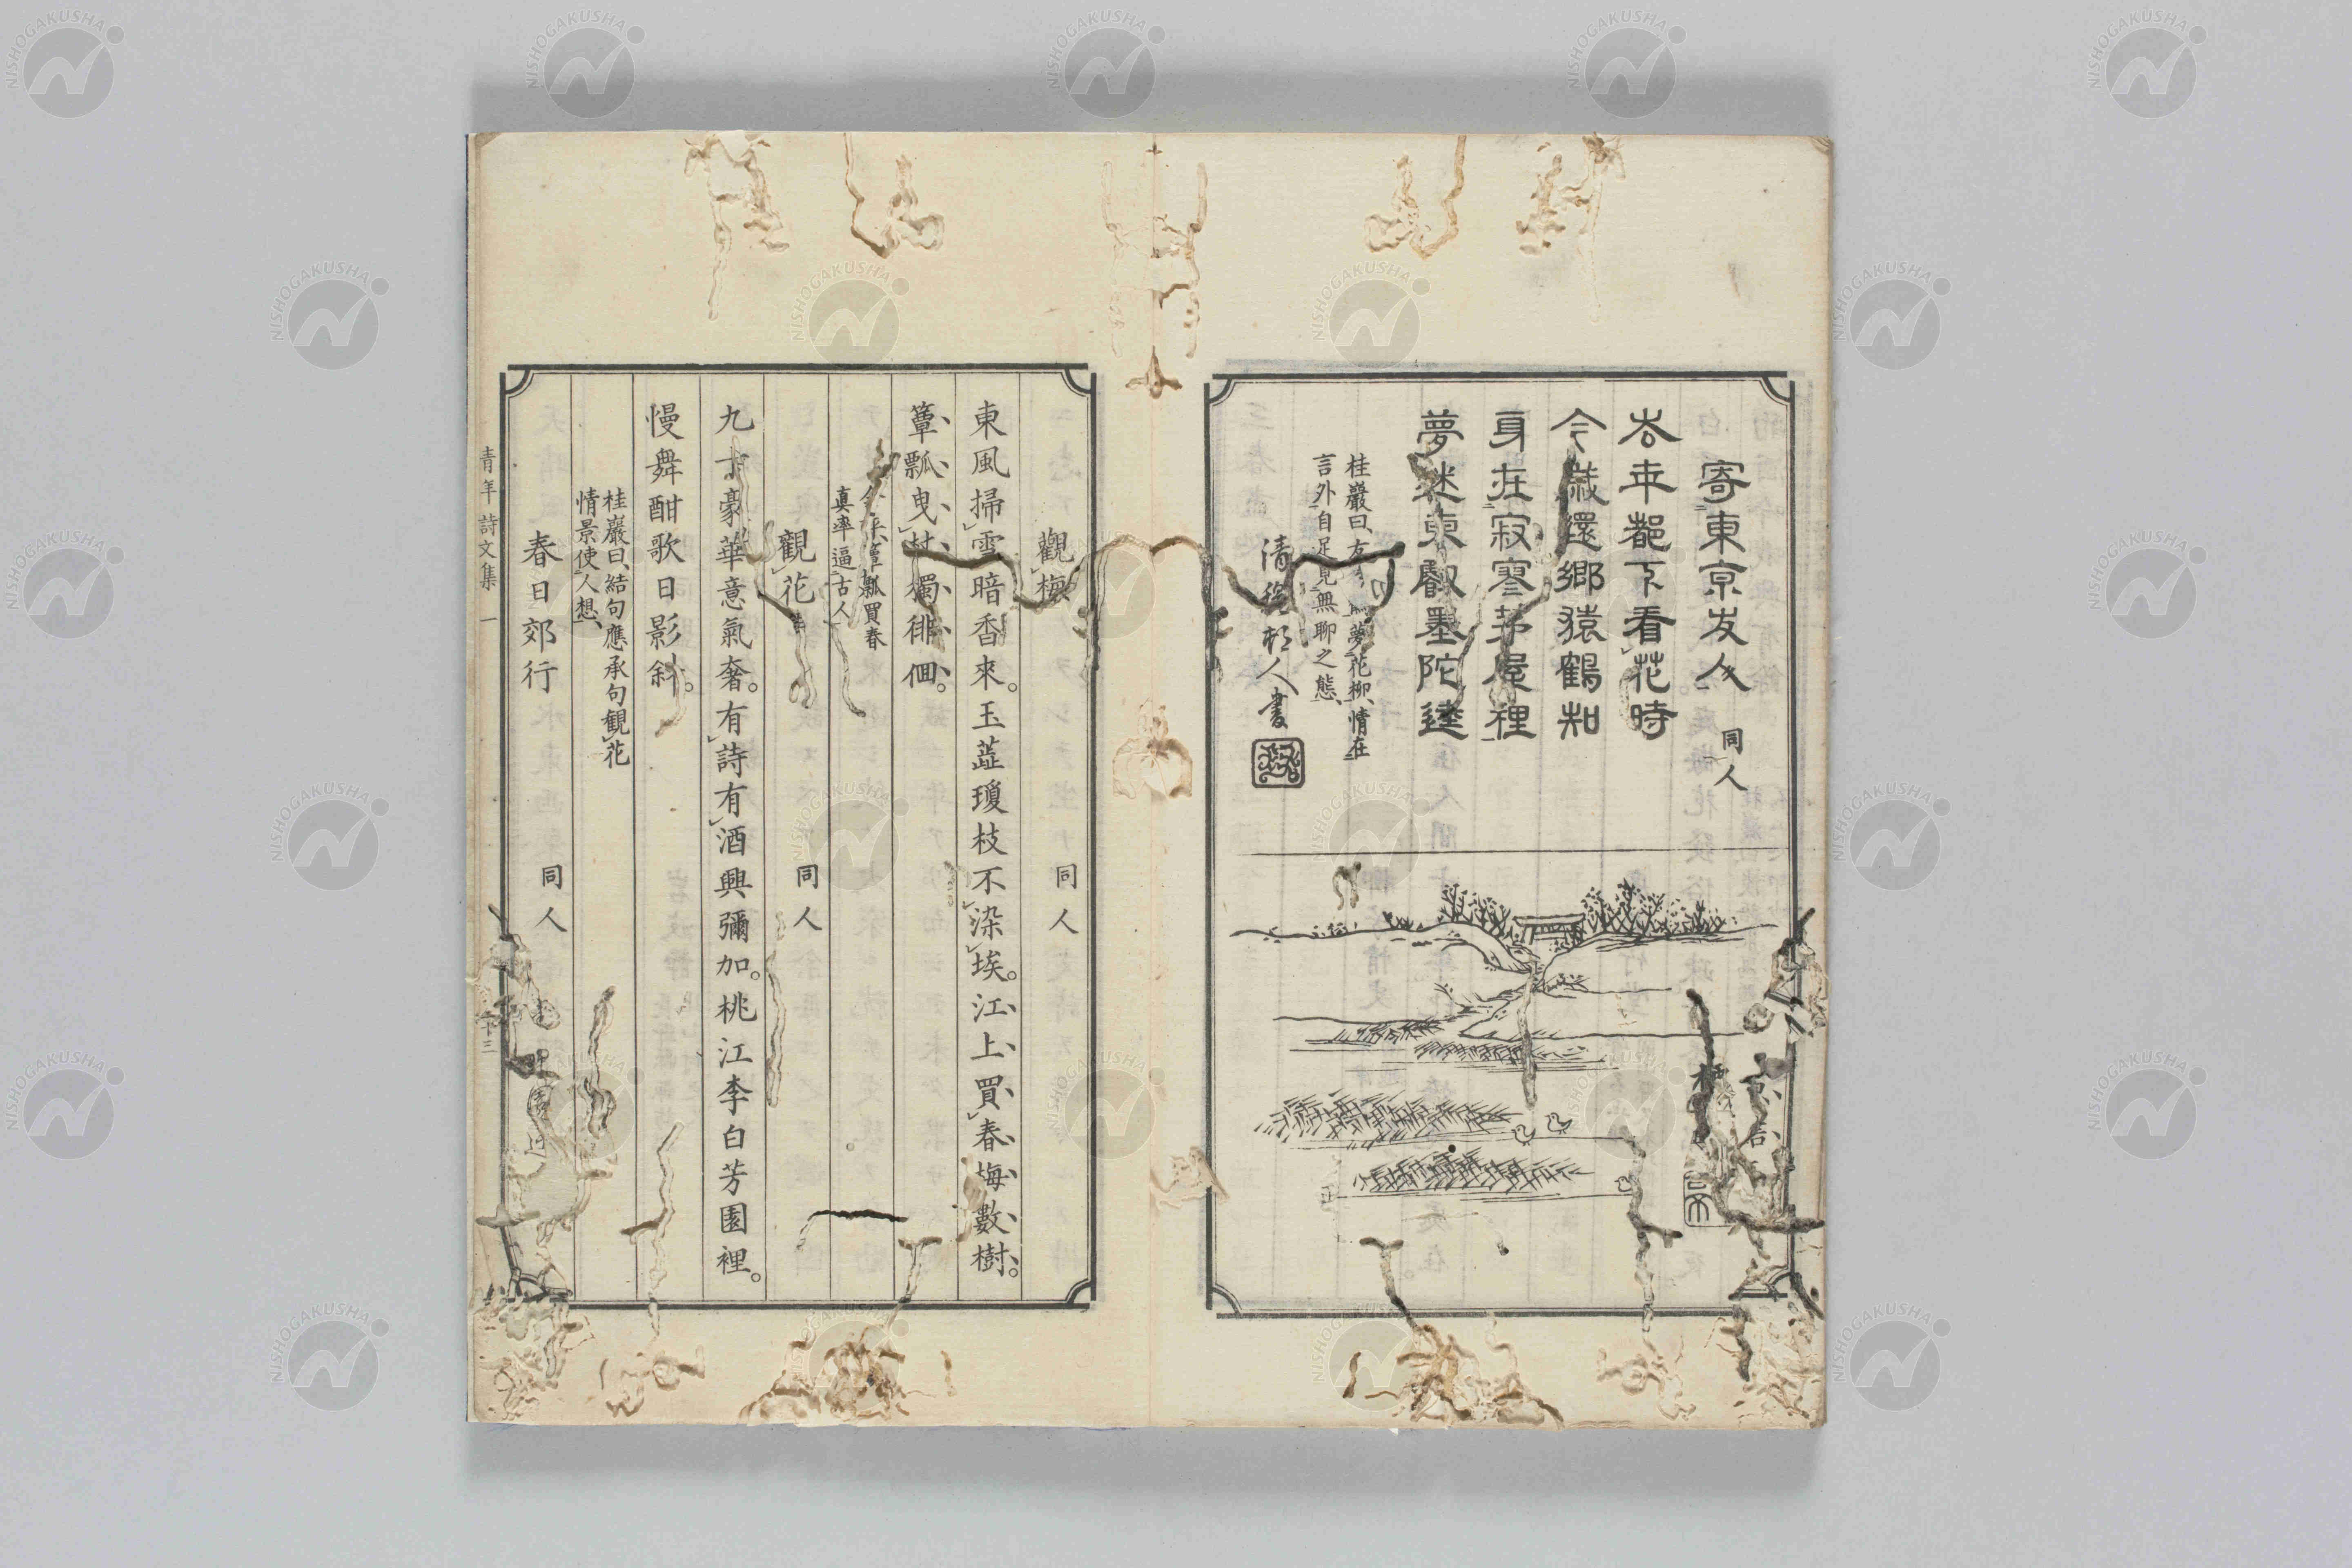 寄東京友人 同人
去年都下看花時
今歳還鄉猿鶴知
身在寂寥茅屋裡
夢迷東叡墨陀遶
桂巖曰、夢花柳、情在
言外自足見無聊之態、
人書
觀梅 同人
東風掃雪暗香來。玉蕋瓊枝不染埃。江上買春梅數樹。
簞瓢曳杖獨徘徊。
簞瓢買春
真率逼古人
觀花 同人
九十豪華意氣奢。有詩有酒興彌加。桃江李白芳園裡。
慢舞酣歌日影斜。
桂巖曰、結句應承句觀花
情景使人想、
春日郊行 同人
青年詩文集 一
十三
NISHOGAKUSHA